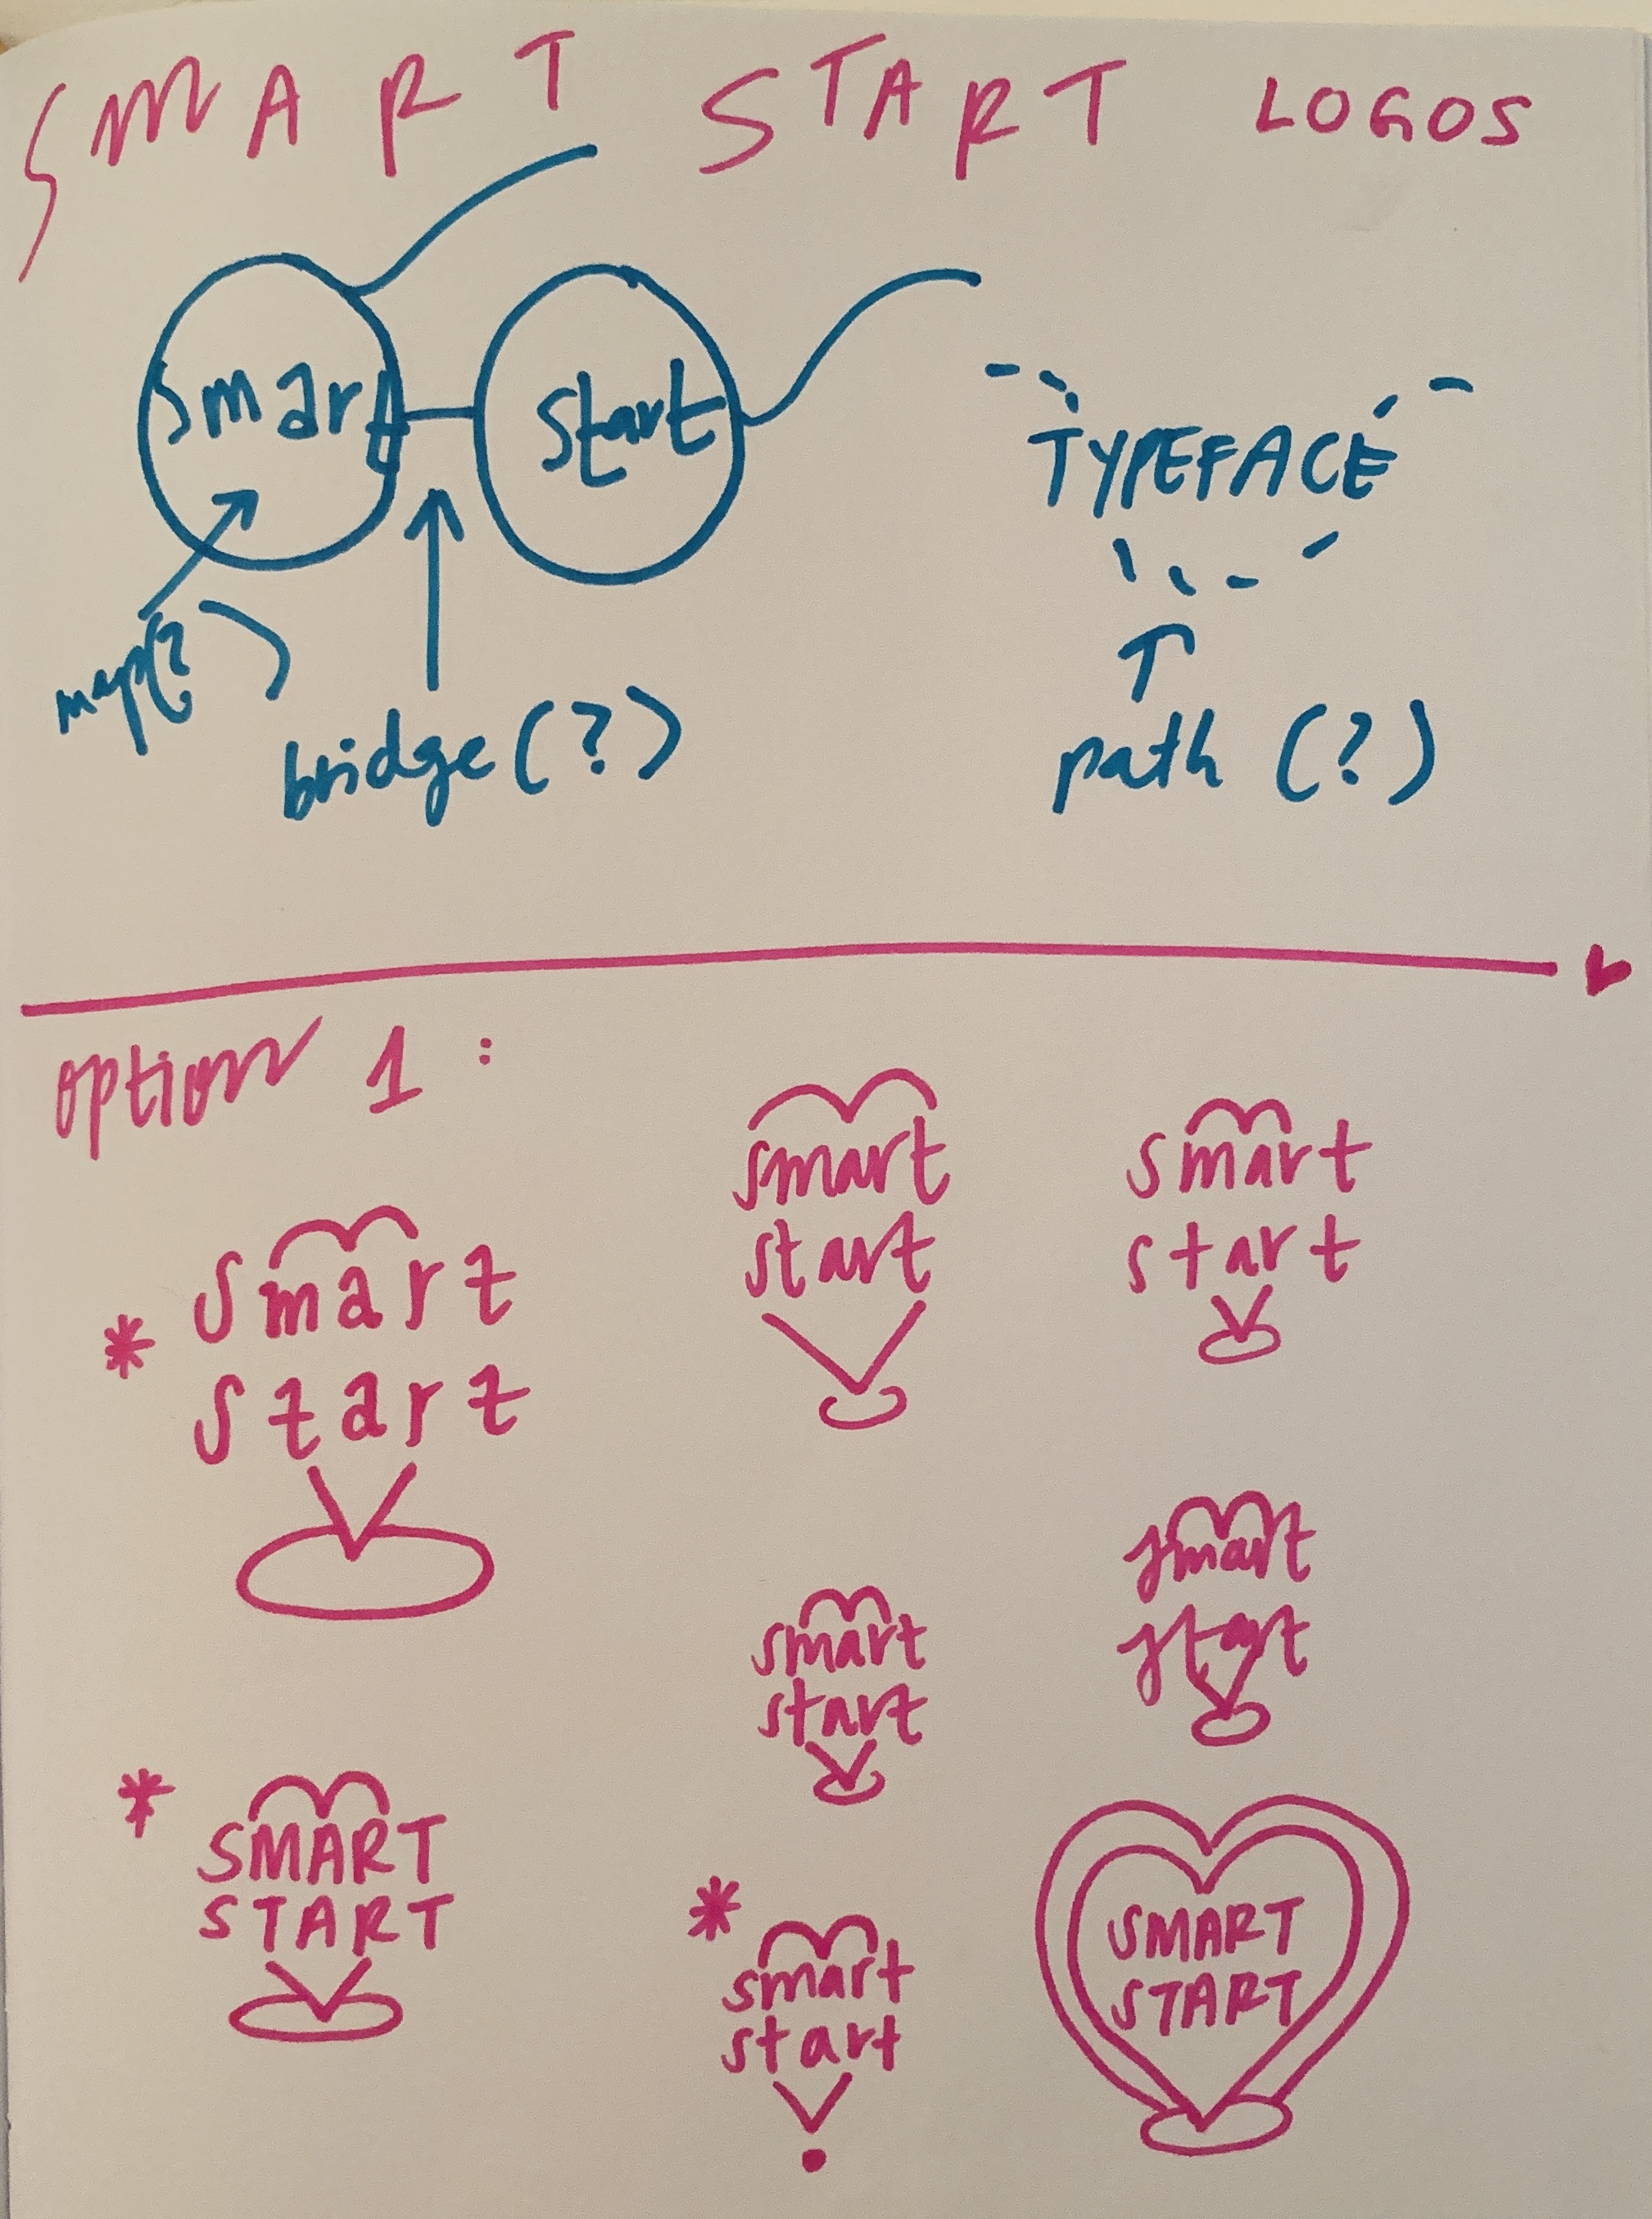 SMART START LOGOS
smart start
TYPEFACE
map(?)
bridge (?)
path (?)
option 1:
smart
start
smart
start
* smart
start
smart
start
smart
start
* SMART
START
* smart
start
SMART
START